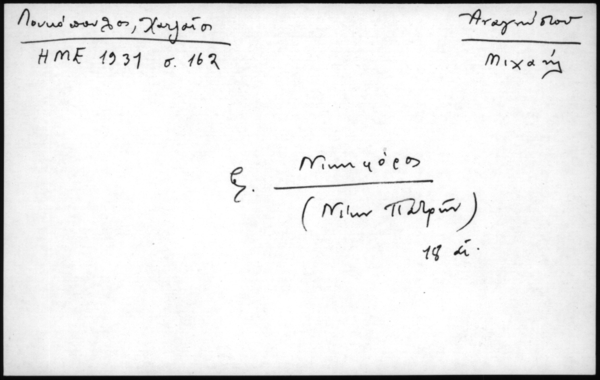 Λουκόπουλος, Χαλαίοι
ΗΜΕ 1931 σ. 162
Αναγνώστου
Μιχαήλ
ξ. Νικηφόρος
(Νέων Πατρών)
18 αἰ.